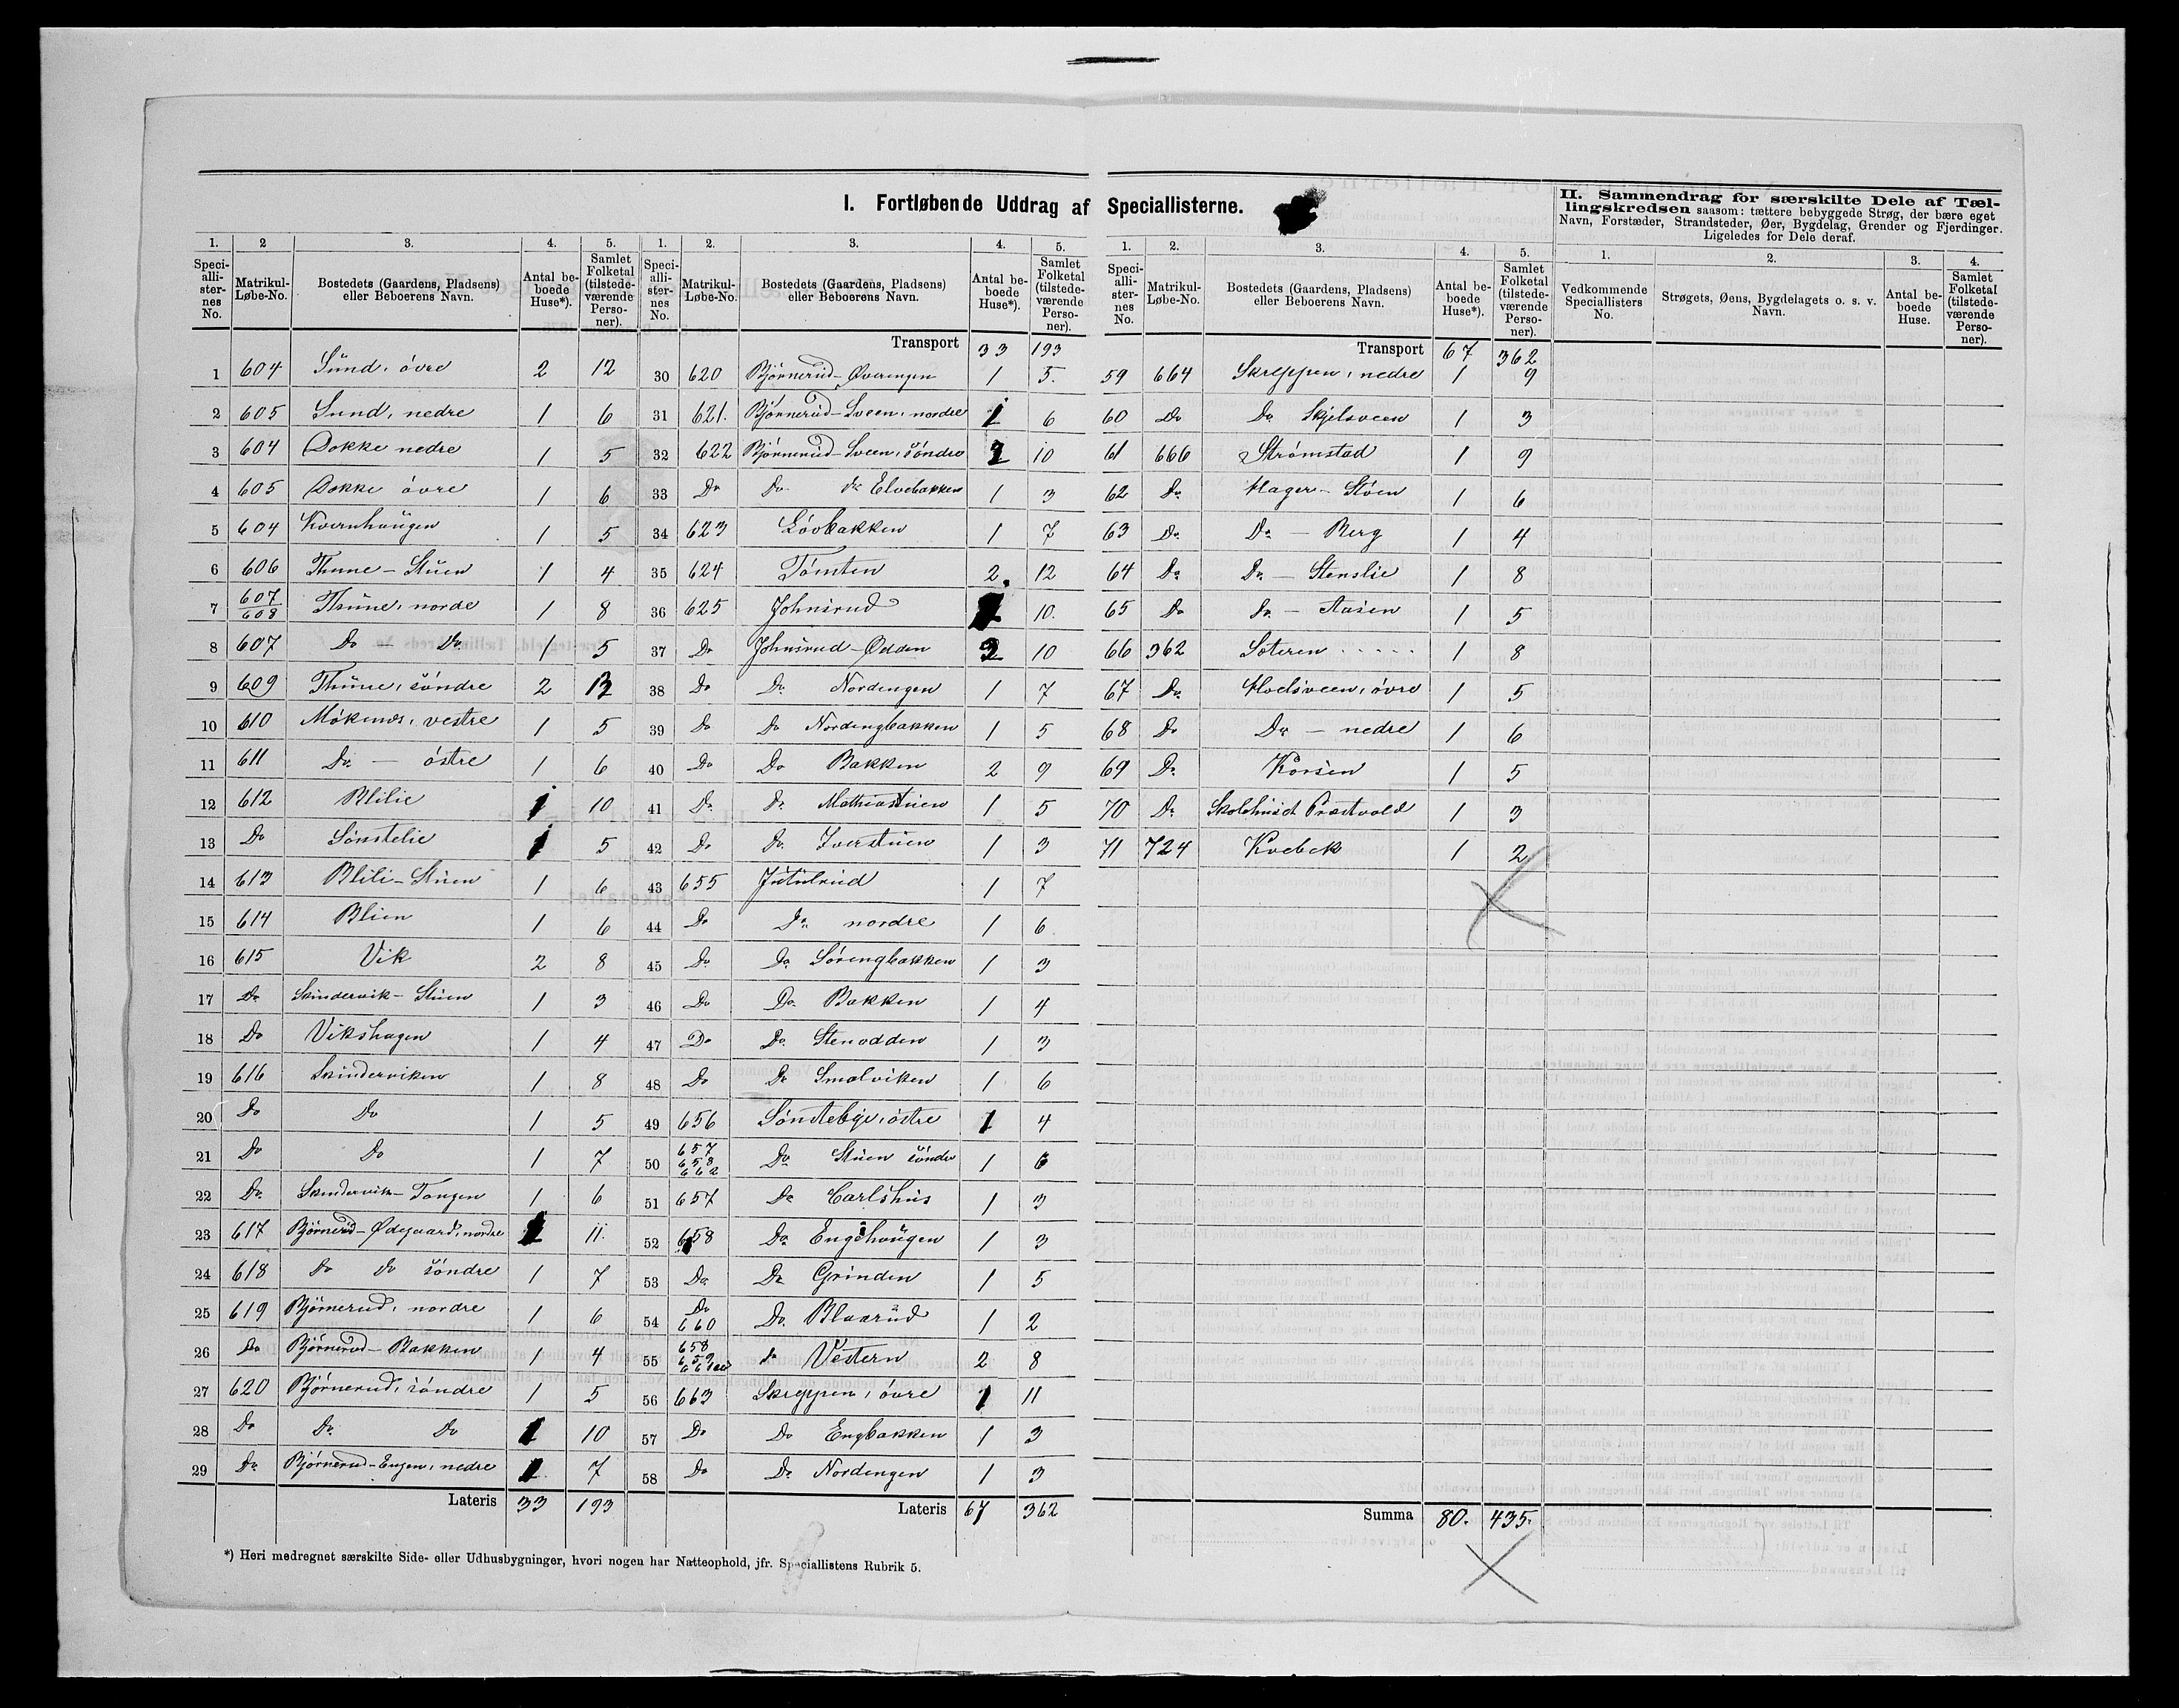 I. Fortløbende Uddrag af Speciallisterne.
II. Sammendrag for særskilte Dele af Tæl-
lingskredsen saasom: tættere bebyggede Strøg, der bære eget
Navn, Forstæder, Strandsteder, Øer, Bygdelag, Grender og Fjerdinger.
Ligeledes for Dele deraf.
1. 2 3. 4. 5.
Speci-alli-ster-nes No. Matrikul-Løbe-No. Bostedets (Gaardens, Pladsens) eller Beboerens Navn. Antal be-boede Huse*). Samlet Folketal (tilstede-værende Perso-ner).
1 604 Sund, övre 2 12
2 605 Sund, nedre 1 6
3 604 Dokke nedre 1 5
4 605 Dokke övre 1 6
5 604 Kvernhaugen 1 5
6 606 Thune-Stuen 1 4
7 607/608 Thune, nordre 1 8
8 607 Do - Do 1 5
9 609 Thune, söndre 2
10 610 vestre 1 5
11 611 Do - östre 1 6
12 612 Blilie 1 10
13 Do Sönstelie 1 5
14 613 Blili-Stuen 1 6
15 614 Blien 1 6
16 615 Vik 2 8
17 Do Skindervik-Stuen 1 3
18 Do Vikshagen 1 4
19 616 Skinderviken 1 8
20 Do Do 1 5
21 Do Do 1 7
22 Do Skindervik-Tangen 1 6
23 617 Björnerud-Ødegaard, nordre 11.
24 618 Do Do söndre 1 7
25 619 Björnerud, nordre 1 6
26 Do Björnerud-Bakken 1 4
27 620 Björnerud, söndre 1 5
28 Do Do Do 1 10
29 Do Björnerud-Engen, nedre 7
Lateris 33 193
1. 2. 3. 4. 5.
Speci-alli-ster-nes No. Matrikul-Løbe-No. Bostedets (Gaardens, Pladsens) eller Beboerens Navn. Antal be-boede Huse*). Samlet Folketal (tilstede-værende Perso-ner).
Transport 33 193
30 620 Björnerud-Øverengen 1 5.
31 621. Björnerud-Sveen, nordre 1 6
32 622 Björnerud-Sveen, söndre 10
33 Do Do Do Elvebakken 1 3
34 623 Lövbakken 1 7
35 624 Tömten 2. 12
36 625 Johnsrud 10.
37 Do Johnsrud-Odden 10
38 Do Do Nordengen 1 7
39 Do Do Nordengbakken 1 5
40 Do Do Bakken 2 9
41 Do Do Mathiasstuen 1 5
42 Do Do Iverstuen 1 3
43 655 Jutulrud 1 7
44 Do Do nordre 1 6
45 Do Do Sörengbakken 1 3
46 Do Do Bakken 1 4
47 Do Do Stenodden 1 3
48 Do Do Smalviken 1 6
49 656 Söndteby, östre 1 4
50 657 658 662 Do Stuen söndre 1 6
51 657 Do Carlshus 1 3
52 658 Do Engehaugen 1 3
53 Do Do Grinden 1 5
54 Do 660 Do Blaarud 1 2
55 658 659 Do Vestern 2 8
56 663 Skreppen, övre 1 11
57 Do Do Engbakken 1 3
58 Do Do Nordengen 1 3
Lateris 67 362
1. 2. 3. 4. 5.
Speci-alli-ster-nes No. Matrikul-Løbe-No. Bostedets (Gaardens, Pladsens) eller Beboerens Navn. Antal be-boede Huse*). Samlet Folketal (tilstede-værende Perso-ner).
Transport 67 362
59 664 Skreppen, nedre 1 9
60 Do Do Skjelsveen 1 3
61 666 Strömstad 1 9
62 Do Hager-Stöen 1 6
63 Do Do - Berg 1 4
64 Do Do - Stenslie 1 8
65 Do Do - Aasen 1 5
66 362 Soteren 1 8
67 Do Hoelsveen, övre 1 5
68 Do Do - nedre 1 6
69 Do Korsen 1 5
70 Do Skolehuset Præstvold 1 3
71 724 Kvebek 1 2
Summa 80. 435.
1. 2. 3. 4.
Vedkommende Speciallisters No. Strøgets, Øens, Bygdelagets o. s. v. Navn. Antal be-boede Huse. Samlet Folketal (tilstede-værende Perso-ner).
*) Heri medregnet særskilte Side- eller Udhusbygninger, hvori nogen har Natteophold, jfr. Speciallistens Rubrik 5.